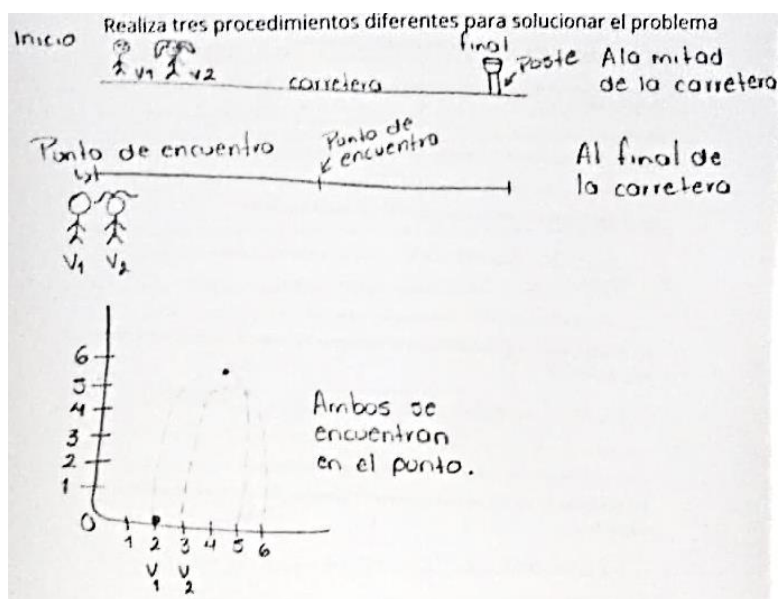 Realiza tres procedimientos diferentes para solucionar el problema
Inicio
final
V1 V2
carretera
Poste
A la mitad
de la carretera
Punto de encuentro
Punto de
encuentro
Al final de
la carretera
V1 V2
6
5
4
3
2
1
0
1 2 3 4 5 6
V1 V2
Ambos se
encuentran
en el punto.